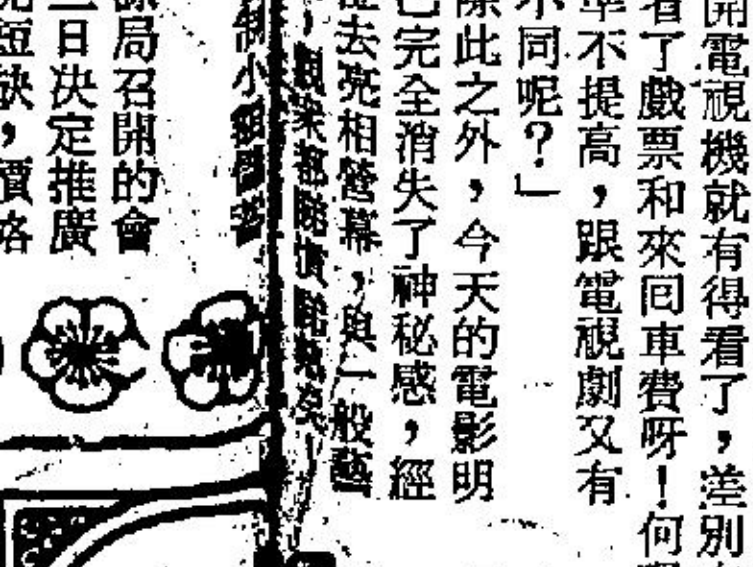 開電視機就有得看了，差別
看了戲票和來回車費呀！何
準不提高，跟電視劇又有
不同呢？」
除此之外，今天的電影明
已完全消失了神秘感，經
去亮相螢幕，與一般藝
制小組
源局召開的會
二日決定推廣
短缺，價格